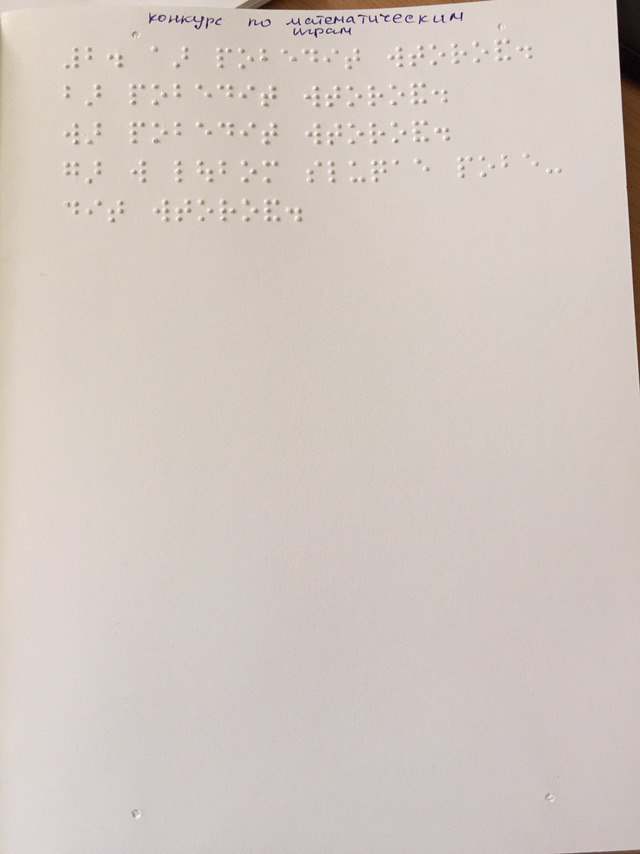 конкурс по математическим
играм
⠼⠃⠲ ⠁⠜ ⠏⠕⠃⠑⠙⠊⠞ ⠺⠞⠕⠗⠕⠯⠲
⠃⠜ ⠏⠕⠃⠑⠙⠊⠞ ⠺⠞⠕⠗⠕⠯⠲
⠺⠜ ⠏⠕⠃⠑⠙⠊⠞ ⠺⠞⠕⠗⠕⠯⠲
⠛⠜ ⠺ ⠇⠳⠃⠕⠍ ⠎⠇⠥⠟⠁⠑ ⠏⠕⠃⠑⠤
⠙⠊⠞ ⠺⠞⠕⠗⠕⠯⠲